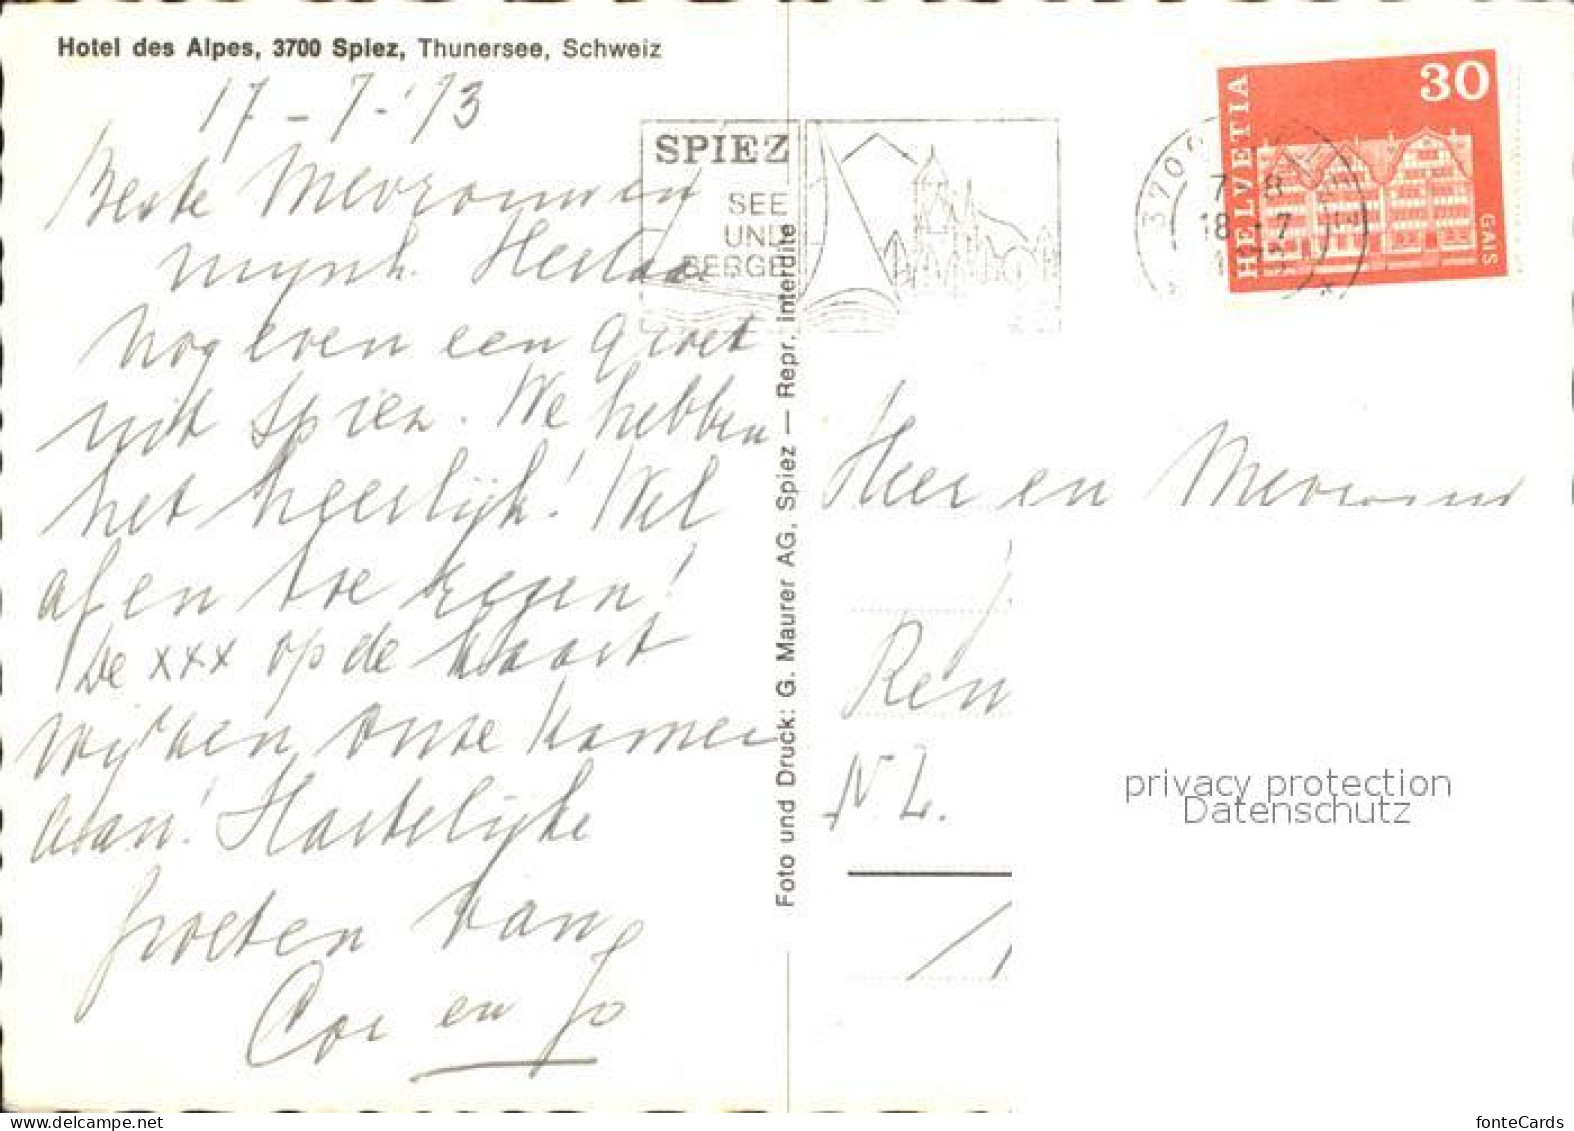 Hotel des Alpes, 3700 Spiez, Thunersee, Schweiz
17-7-'73
Beste Mevrouw en
mynh.
nog even een groet
uit Spiez. We hebben
het heerlijk! Wel
af en toe regen!
De xxx op de kaart
wijzen onze kamer
aan! Hartelijke
groeten van
Cor en Jo
SPIEZ
SEE
UND
BERGE
Foto und Druck: G. Maurer AG, Spiez — Repr. interdite
3700
7-8
18-7
HELVETIA
30
GAIS
Heer en Mevrouw
N.L.
privacy protection
Datenschutz
fonteCards